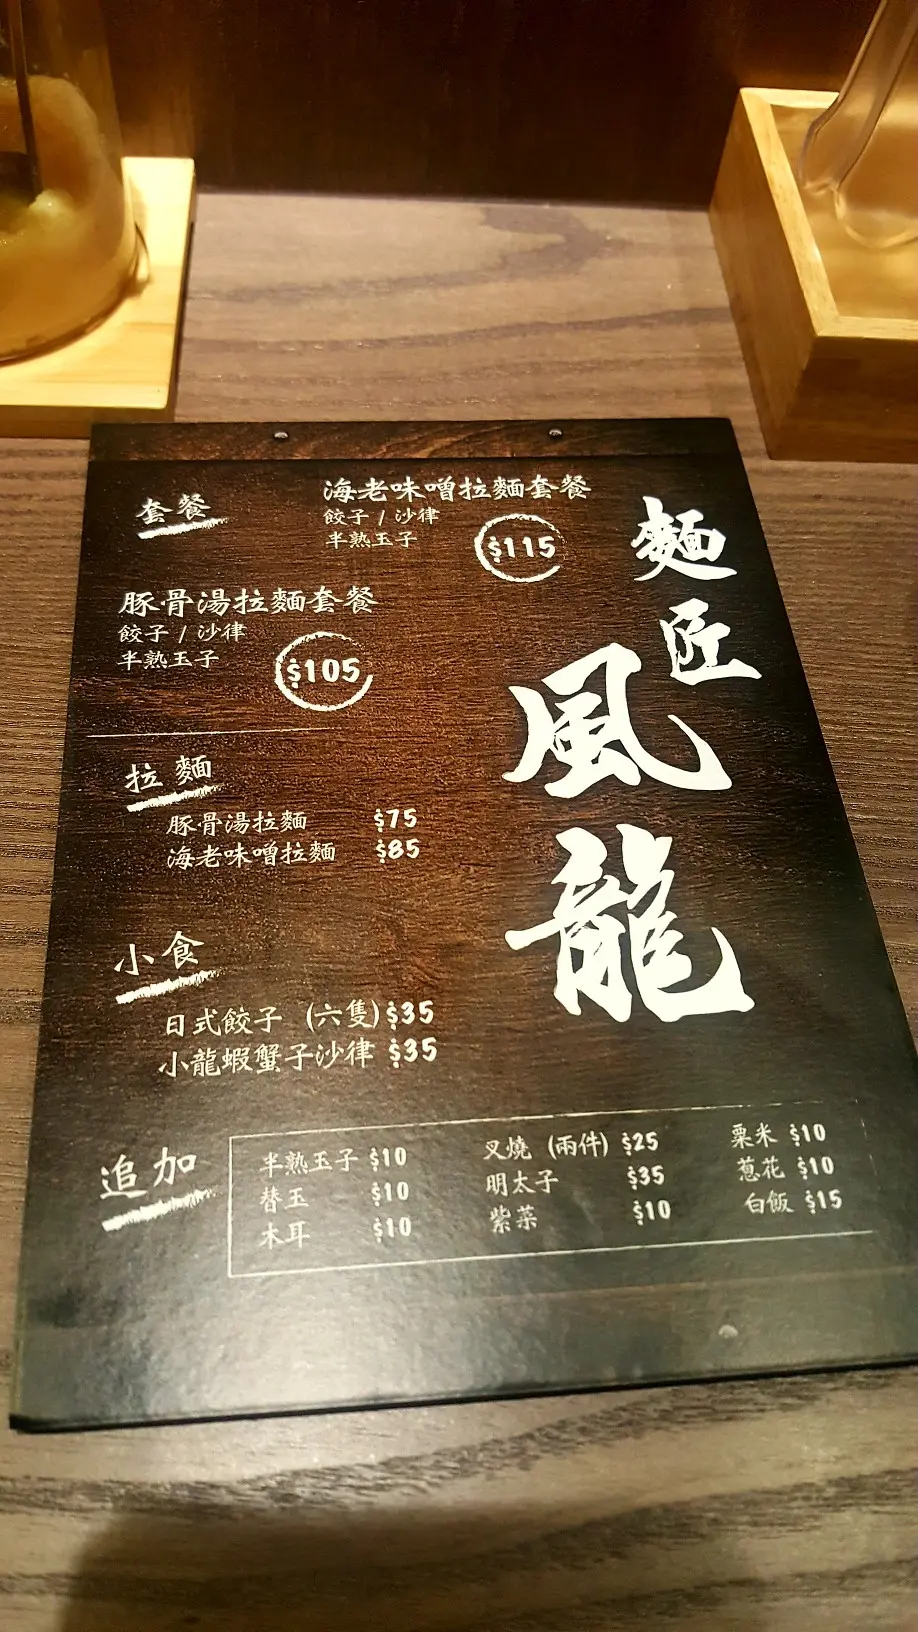 套餐
海老味噌拉麵套餐
餃子 / 沙律
半熟玉子
$115
豚骨湯拉麵套餐
餃子 / 沙律
半熟玉子
$105
麵匠
風龍
拉麵
豚骨湯拉麵 $75
海老味噌拉麵 $85
小食
日式餃子 (六隻) $35
小龍蝦蟹子沙律 $35
追加
半熟玉子 $10
替玉 $10
木耳 $10
叉燒 (兩件) $25
明太子 $35
紫菜 $10
粟米 $10
蔥花 $10
白飯 $15